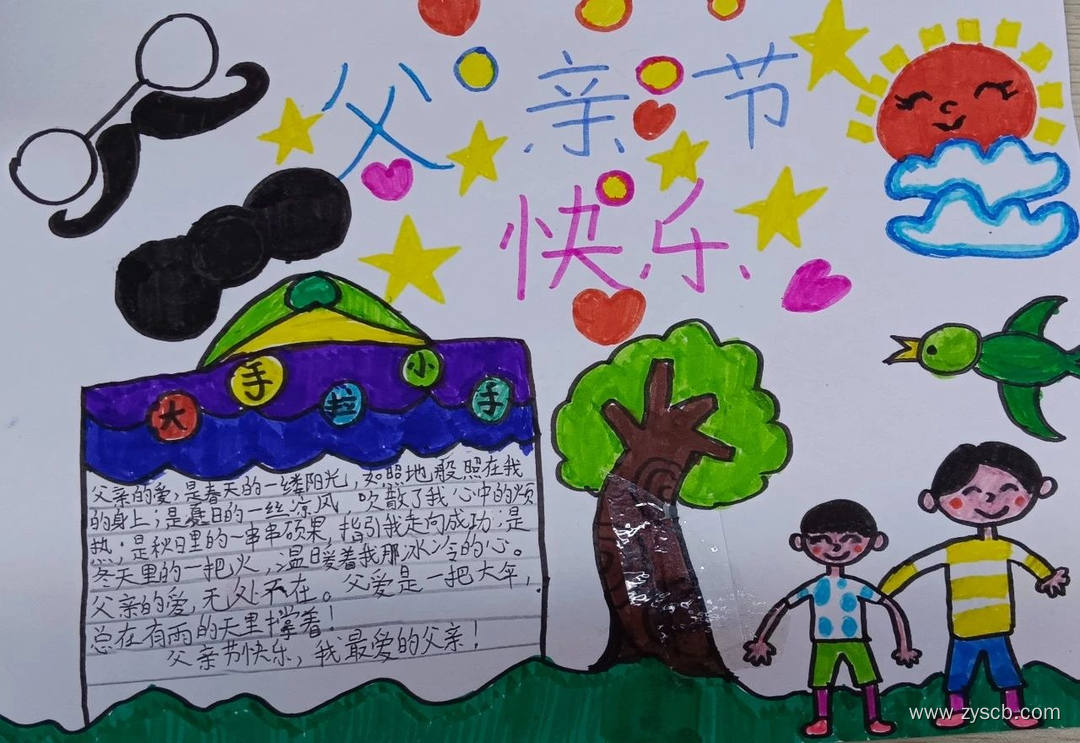 父亲节
快乐
大手拉小手
父亲的爱,是春天的一缕阳光,如照地般照在我
的身上;是夏日的一丝凉风,吹散了我心中的烦
热;是秋日里的一串串硕果,指引我走向成功;是
冬天里的一把火,温暖着我那冰冷的心。
父亲的爱,无处不在。父爱是一把大伞,
总在有雨的天里撑着!
父亲节快乐,我最爱的父亲!
www.zyscb.com